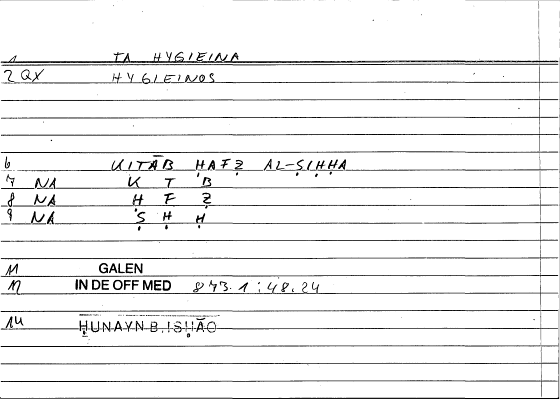 1 TA HYGIEINA
2 QX HYGIEINOS
6 KITĀB ḤAFẒ AL-ṢIḤḤA
7 NA K T B
8 NA Ḥ F Ẓ
9 NA Ṣ Ḥ Ḥ
11 GALEN
12 IN DE OFF MED 873.1:48.24
14 ḤUNAYN B. ISḤĀQ